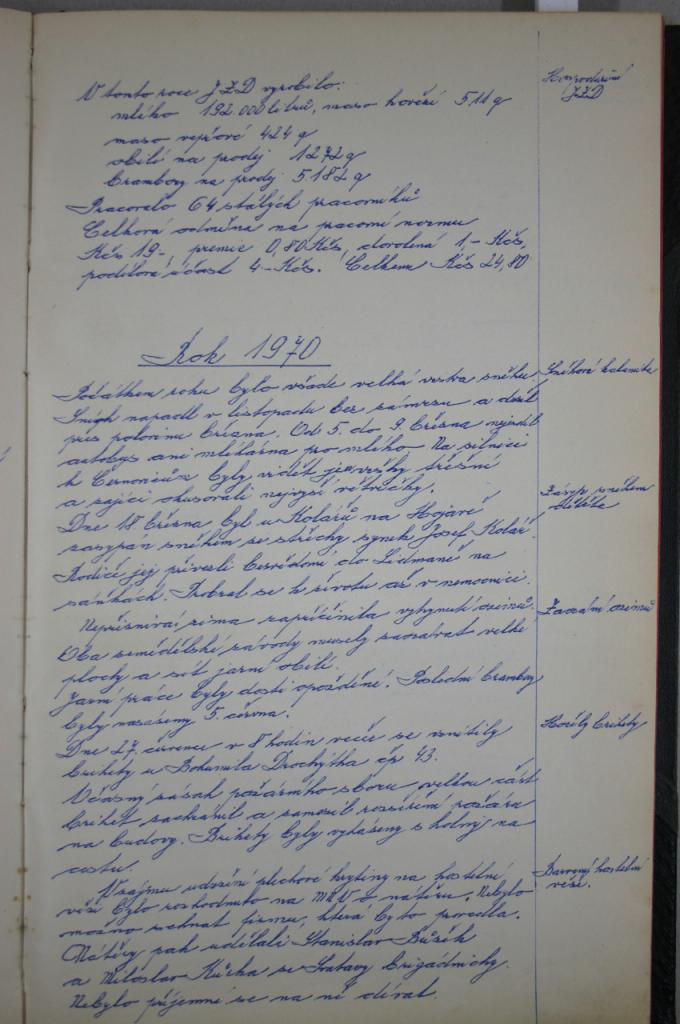 V tomto roce JZD vyrobilo:
mléko 192 000 litrů, maso hovězí 511 q
maso vepřové 424 q
obilí na prodej 1272 q
brambory na prodej 5182 q
Pracovalo 64 stálých pracovníků
Celková odměna na pracovní normu
Kčs 19-, premie 0,80 Kčs, dovolená 1,- Kčs,
podílová účast 4- Kčs. Celkem Kčs 24,80
Hospodaření
JZD
Rok 1970
Počátkem roku byla všade velká vrstva sněhu
Sníh napadl v listopadu bez zámrzu a držel
přes polovinu března. Od 5. do 9. března nejezdil
autobus ani mlékárna pro mléko. Na silnici
k Černovicům byly vidět jen vršky třešní
a zajíci okusovali nejvyšší větvičky.
Dne 18. března byl u Kolářů na Hojavě
zasypán sněhem se střechy synek Josef Kolář.
Rodiče jej přivezli bezvědomí do Lidmaně na
sáňkách. Probral se k životu až v nemocnici.
Nepříznivá zima zapříčinila vyhynutí ozimů.
Oba zemědělské závody musely zaorávat velké
plochy a sít jarní obilí.
Jarní práce byly dosti opožděné. Poslední brambory
byly nasazeny 5. června.
Dne 27. července v 8 hodin večer se vznítily
brikety u Bohumila Drochýtka čp 43.
Včasný zásah požárního sboru velkou část
briket zachránil a zamezil rozšíření požáru
na budovy. Brikety byly vyházeny s kolny na
cestu.
V zájmu udržení plechové krytiny na kostelní
věži bylo rozhodnuto na MNV o nátěru. Nebylo
možno sehnat firmu, která by to provedla.
Nátěry pak udělali Stanislav Růžek
a Miloslav Kůcha se Svatavy brigádnicky.
Nebylo příjemné se na ně dívat.
Sněhová kalamita
Zásyp sněhem
dítěte
Zaorání ozimů
Hořely brikety
Barvený kostelní
věže.